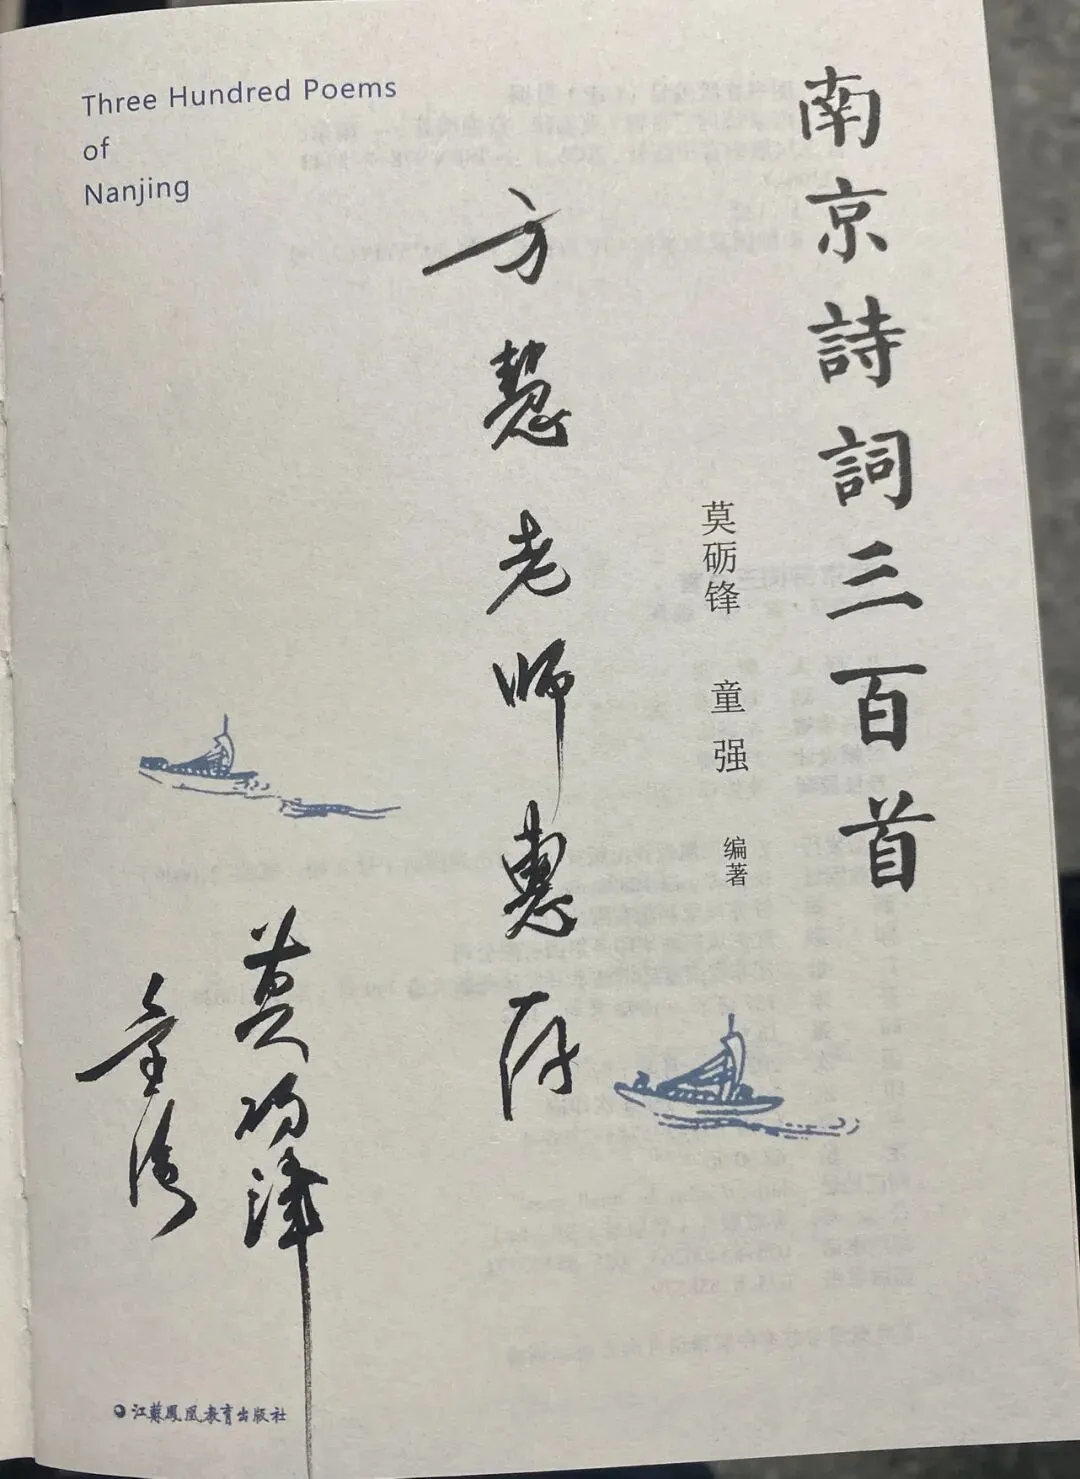 Three Hundred Poems
of
Nanjing
南京詩詞三百首
莫砺锋 童强 编著
方慧老师惠存
莫砺锋
童强
江苏凤凰教育出版社